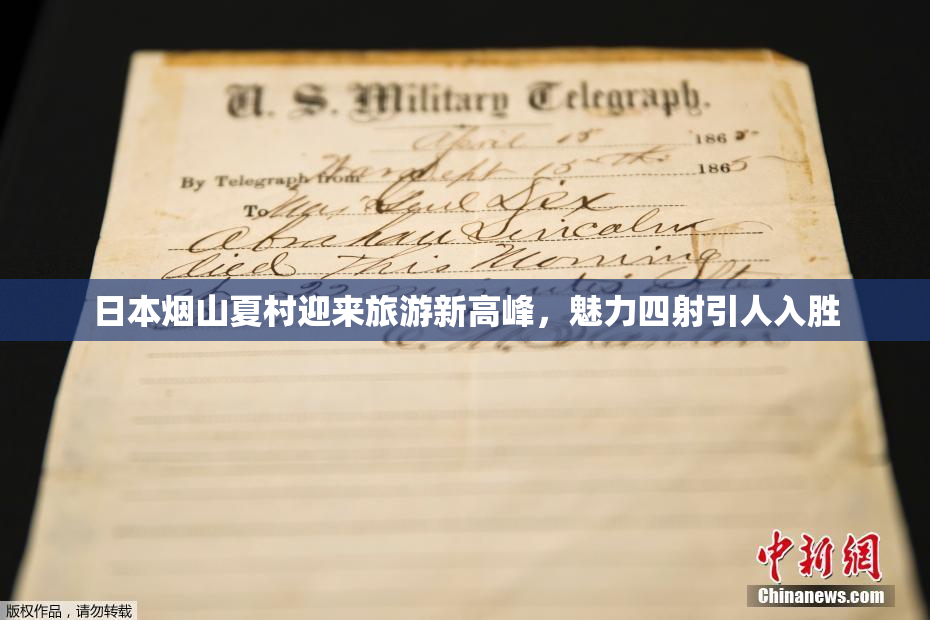 U. S. Military Telegraph.
April 15 1865
By Telegraph from War Dept 15th 1865
To Maj Genl Dix
Abraham Lincoln
died This Morning
at 22 minutes after
日本烟山夏村迎来旅游新高峰，魅力四射引人入胜
E. M. Stanton
中新网
Chinanews.com
版权作品，请勿转载